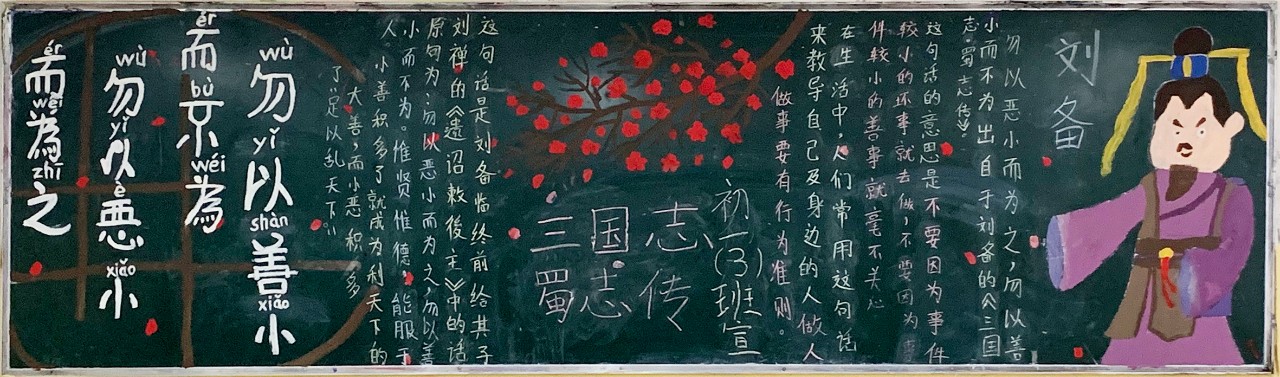 刘备
勿以恶小而为之,勿以善
小而不为出自于刘备的《三国
志·蜀志传》。
这句话的意思是不要因为事件
较小的坏事就去做,不要因为事
件较小的善事就毫不关心
在生活中,人们常用这句话
来教导自己及身边的人做人
做事要有行为准则。
初一(3)班宣
三国志
蜀志传
这句话是刘备临终前给其子
刘禅的《遗诏敕後主》中的话
原句为:勿以恶小而为之,勿以善
小而不为。惟贤惟德,能服于
人。小善积多了就成为利天下的
大善,而小恶积多
了"足以乱天下"
wù yǐ shàn xiǎo
勿以善小
ér bù wéi
而不為
wù yǐ è xiǎo
勿以恶小
ér wéi zhī
而為之